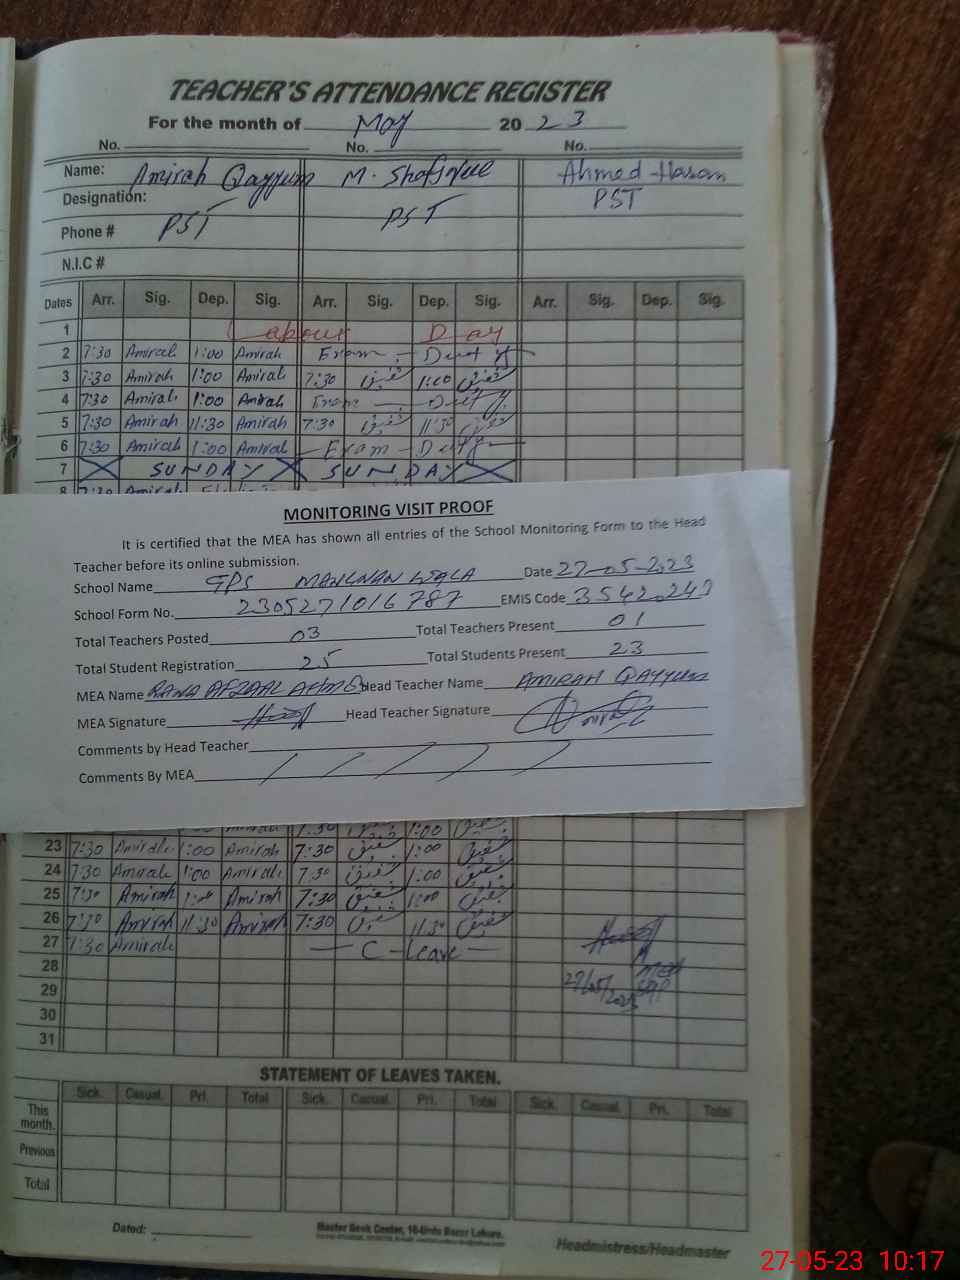 TEACHER'S ATTENDANCE REGISTER
For the month of May 2023
No. No. No.
Name: Amirah Qayyum M. Shafique Ahmed Hasan
Designation: PST PST PST
Phone #
N.I.C #
Dates Arr. Sig. Dep. Sig. Arr. Sig. Dep. Sig. Arr. Sig. Dep. Sig.
1 Labour Day
2 7:30 Amirah 1:00 Amirah Exam - Duty
3 7:30 Amirah 1:00 Amirah 7:30 شفیق 1:00 شفیق
4 7:30 Amirah 1:00 Amirah Exam - Duty
5 7:30 Amirah 11:30 Amirah 7:30 شفیق 11:30 شفیق
6 7:30 Amirah 1:00 Amirah - Exam - Duty -
7 SUNDAY SUNDAY
8 7:30 Amirah
MONITORING VISIT PROOF
It is certified that the MEA has shown all entries of the School Monitoring Form to the Head
Teacher before its online submission.
School Name GPS Date 27-05-2023
School Form No. 2305271016787 EMIS Code
Total Teachers Posted 03 Total Teachers Present 01
Total Student Registration 25 Total Students Present 23
MEA Name RANA AFZAAL AHMED Head Teacher Name AMIRAH QAYYUM
MEA Signature Head Teacher Signature
Comments by Head Teacher
Comments By MEA
Amirah 7:30 شفیق 1:00 شفیق
23 7:30 Amirah 1:00 Amirah 7:30 شفیق 1:00 شفیق
24 7:30 Amirah 1:00 Amirah 7:30 شفیق 1:00 شفیق
25 7:30 Amirah 1:00 Amirah 7:30 شفیق 1:00 شفیق
26 7:30 Amirah 11:30 Amirah 7:30 شفیق 11:30 شفیق
27 7:30 Amirah - C - leave -
28 MEA
29 27/05/2023
30
31
STATEMENT OF LEAVES TAKEN.
Sick. Casual. Pri. Total Sick. Casual. Pri. Total Sick. Casual. Pri. Total
This month.
Previous
Total
Dated: Master Book Center, 16-Urdu Bazar Lahore.
Headmistress/Headmaster
27-05-23 10:17